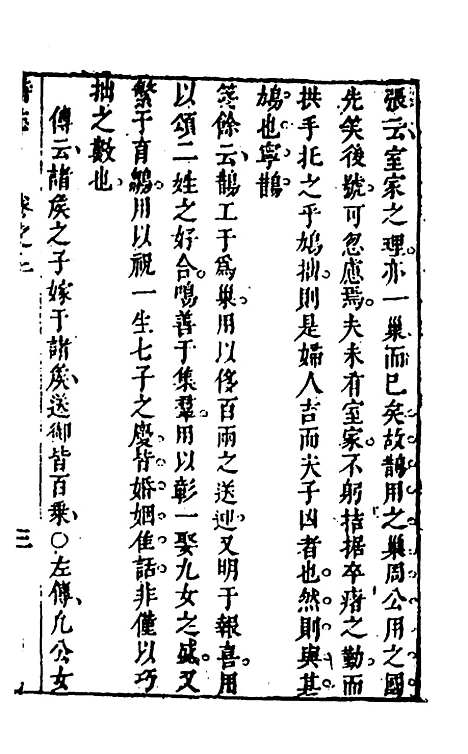 張云室家之理亦一巢而已矣故鵲用之巢周公用之國
先笑後號可忽慮焉夫未有室家不躬拮据卒瘏之勤而
拱手托之乎鳩拙則是婦人吉而夫子凶者也然則與其
鳩也寧鵲
箋餘云鵲工于爲巢用以侈百兩之送迎又明于報喜用
以頌二姓之好合鳴善于集羣用以彰一娶九女之盛又
繁于育鶵用以祝一生七子之慶皆婚姻佳話非僅以巧
拙之數也
傳云諸矦之子嫁于諸矦送御皆百乗〇左傳凡公女
三